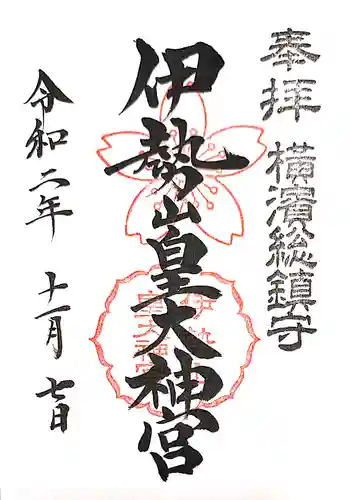 奉拝 横濱総鎮守
伊勢山皇大神宮
令和二年 十一月 七日